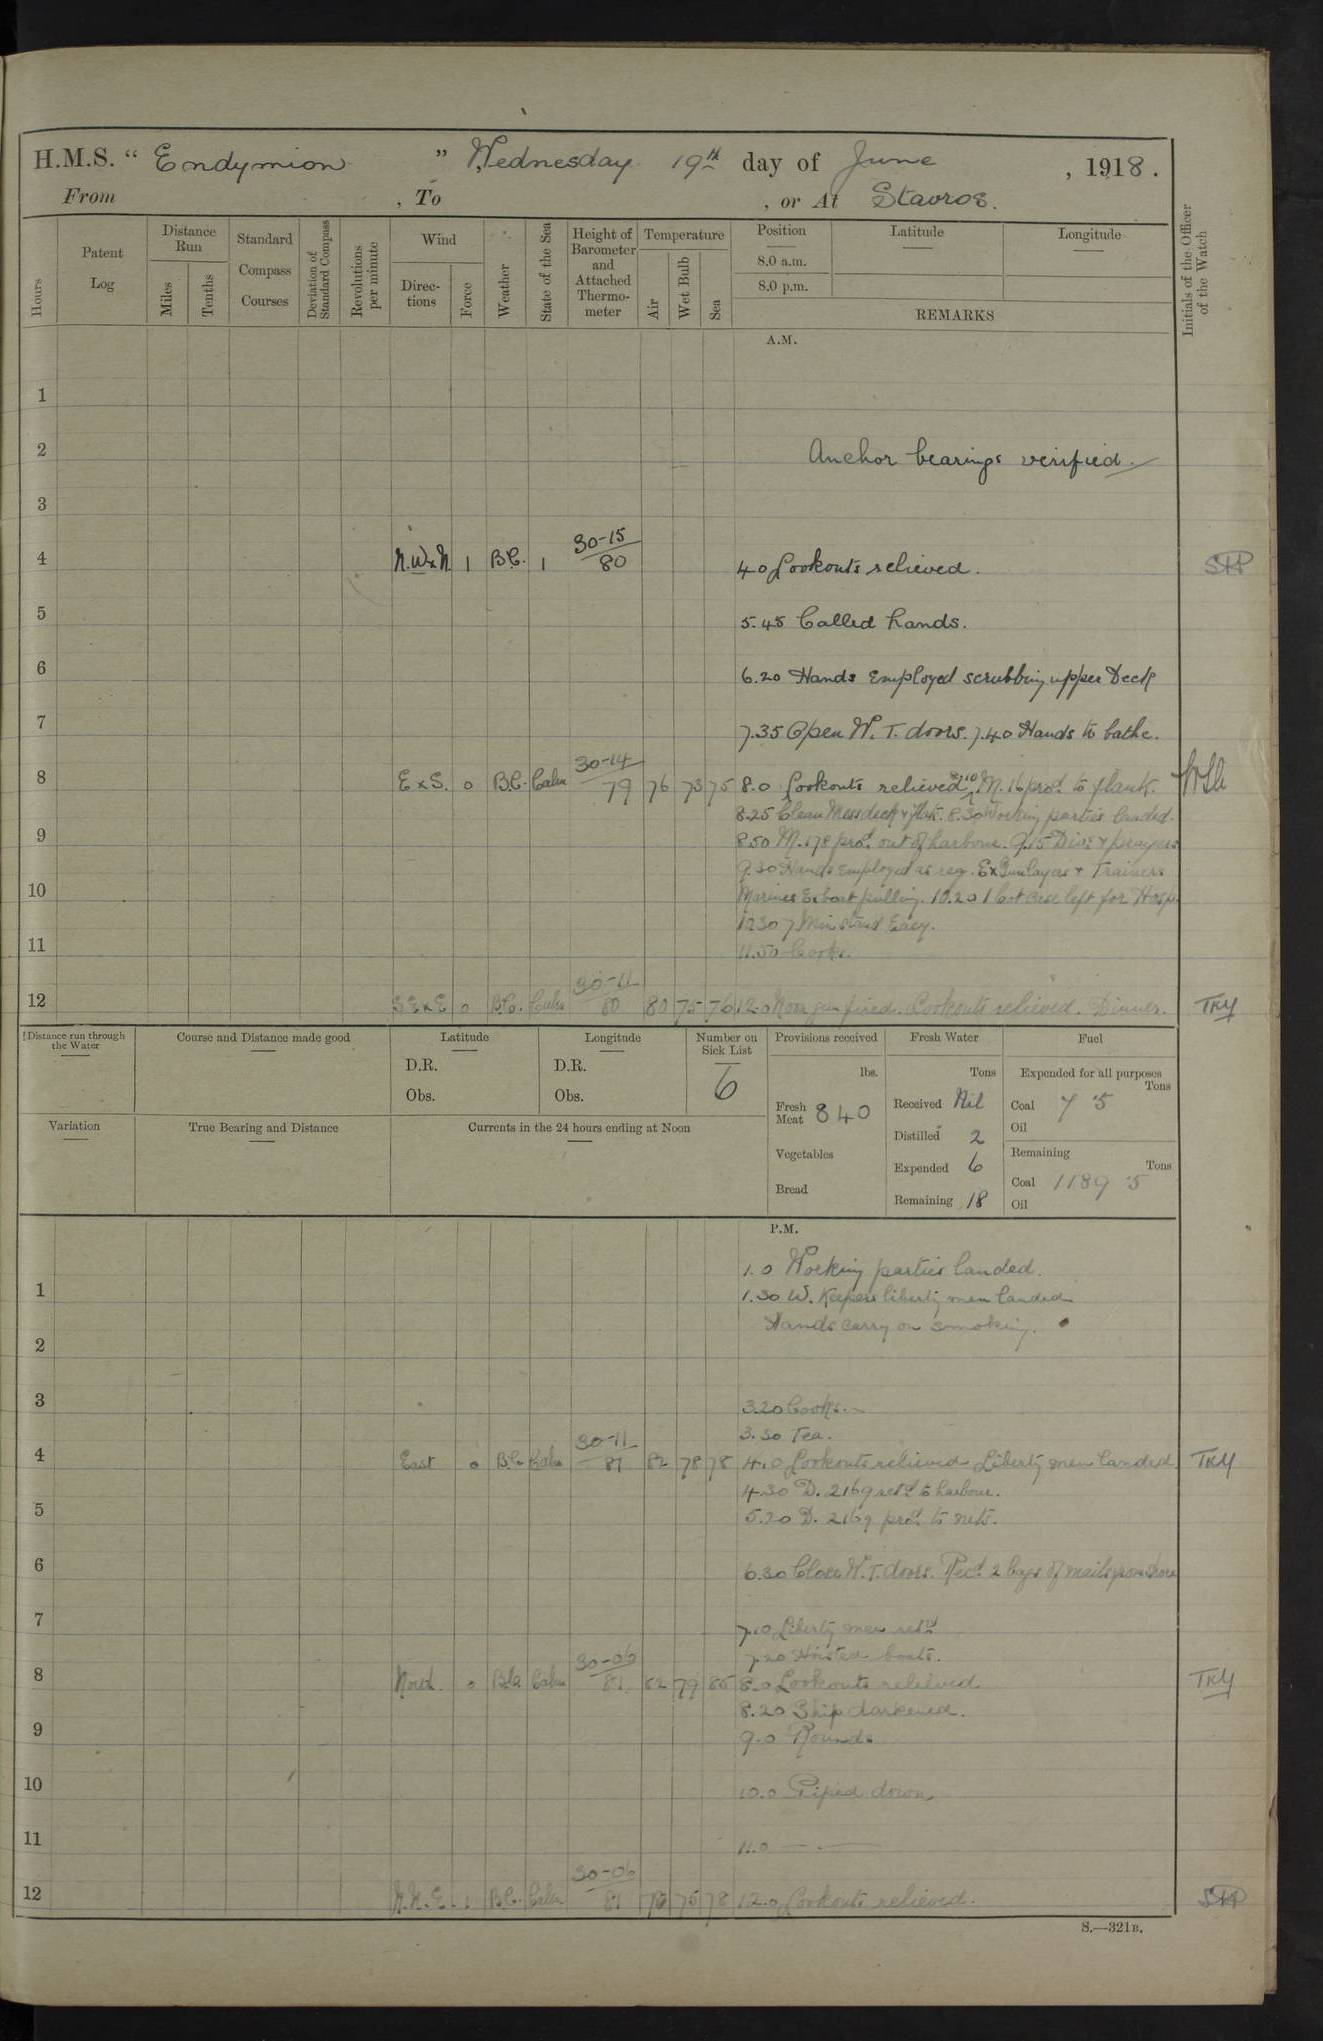 H.M.S. " Endymion " Wednesday 19th day of June , 1918.
From , To , or At Stavros.
Hours
Patent Log
Distance Run
Miles
Tenths
Standard Compass Courses
Deviation of Standard Compass
Revolutions per minute
Wind
Directions
Force
Weather
State of the Sea
Height of Barometer and Attached Thermometer
Temperature
Air
Wet Bulb
Sea
Position
8.0 a.m.
8.0 p.m.
Latitude
Longitude
REMARKS
Initials of the Officer of the Watch
A.M.
1
2 Anchor bearings verified.
3
4 N.WxN. 1 B.C. 1 30-15 80 4.0 Lookouts relieved.
5 5.45 Called hands.
6 6.20 Hands Employed scrubbing upper Deck
7 7.35 Open W.T. doors. 7.40 Hands to bathe.
8 ExS. 0 B.C. Calm 30-14 79 76 73 75 8.0 Lookouts relieved 8.10 M.16 procd. to flank.
8.25 Clean Messdeck & flat. 8.30 Working parties landed.
9 8.50 M.178 procd. out of harbour. 9.15 Divs. & prayers
9.30 Hands Employed as req. Ex Gunlayers & Trainers
10 Marines Ex boat pulling. 10.20 1 Cot Case left for Hosp.
10.30 7 Min stand Easy.
11 11.50 Cooks.
12 SExE 0 B.C. Calm 30-11 80 80 75 76 12.0 Noon gun fired. Lookouts relieved. Dinner. TKY
Distance run through the Water
Course and Distance made good
Latitude
D.R.
Obs.
Longitude
D.R.
Obs.
Number on Sick List
6
Provisions received
lbs.
Fresh Meat 840
Vegetables
Bread
Fresh Water
Tons
Received Nil
Distilled 2
Expended 6
Remaining 18
Fuel
Expended for all purposes
Tons
Coal 7 5
Oil
Remaining
Tons
Coal 1189 5
Oil
Variation
True Bearing and Distance
Currents in the 24 hours ending at Noon
P.M.
1.0 Working parties landed.
1 1.30 W. Keepers liberty men landed
Hands carry on smoking.
2
3 3.20 Cooks.
3.30 Tea.
4 East 0 B.C. Calm 30-11 81 82 78 78 4.0 Lookouts relieved Liberty men landed. TKY
4.30 D. 2169 retd. to harbour.
5 5.20 D. 2169 procd. to nets.
6 6.30 Close W.T. doors. Recd. 2 bags of mails from shore
7 7.0 Liberty men retd.
7.20 Hoisted boats.
8 Nord. 0 B.C. Calm 30-06 81 82 79 80 8.0 Lookouts relieved TKY
8.20 Ship darkened.
9 9.0 Rounds
10 10.0 Piped down
11 11.0
12 N.N.E. 1 B.C. Calm 30-06 81 75 78 12.0 Lookouts relieved.
S.—321B.